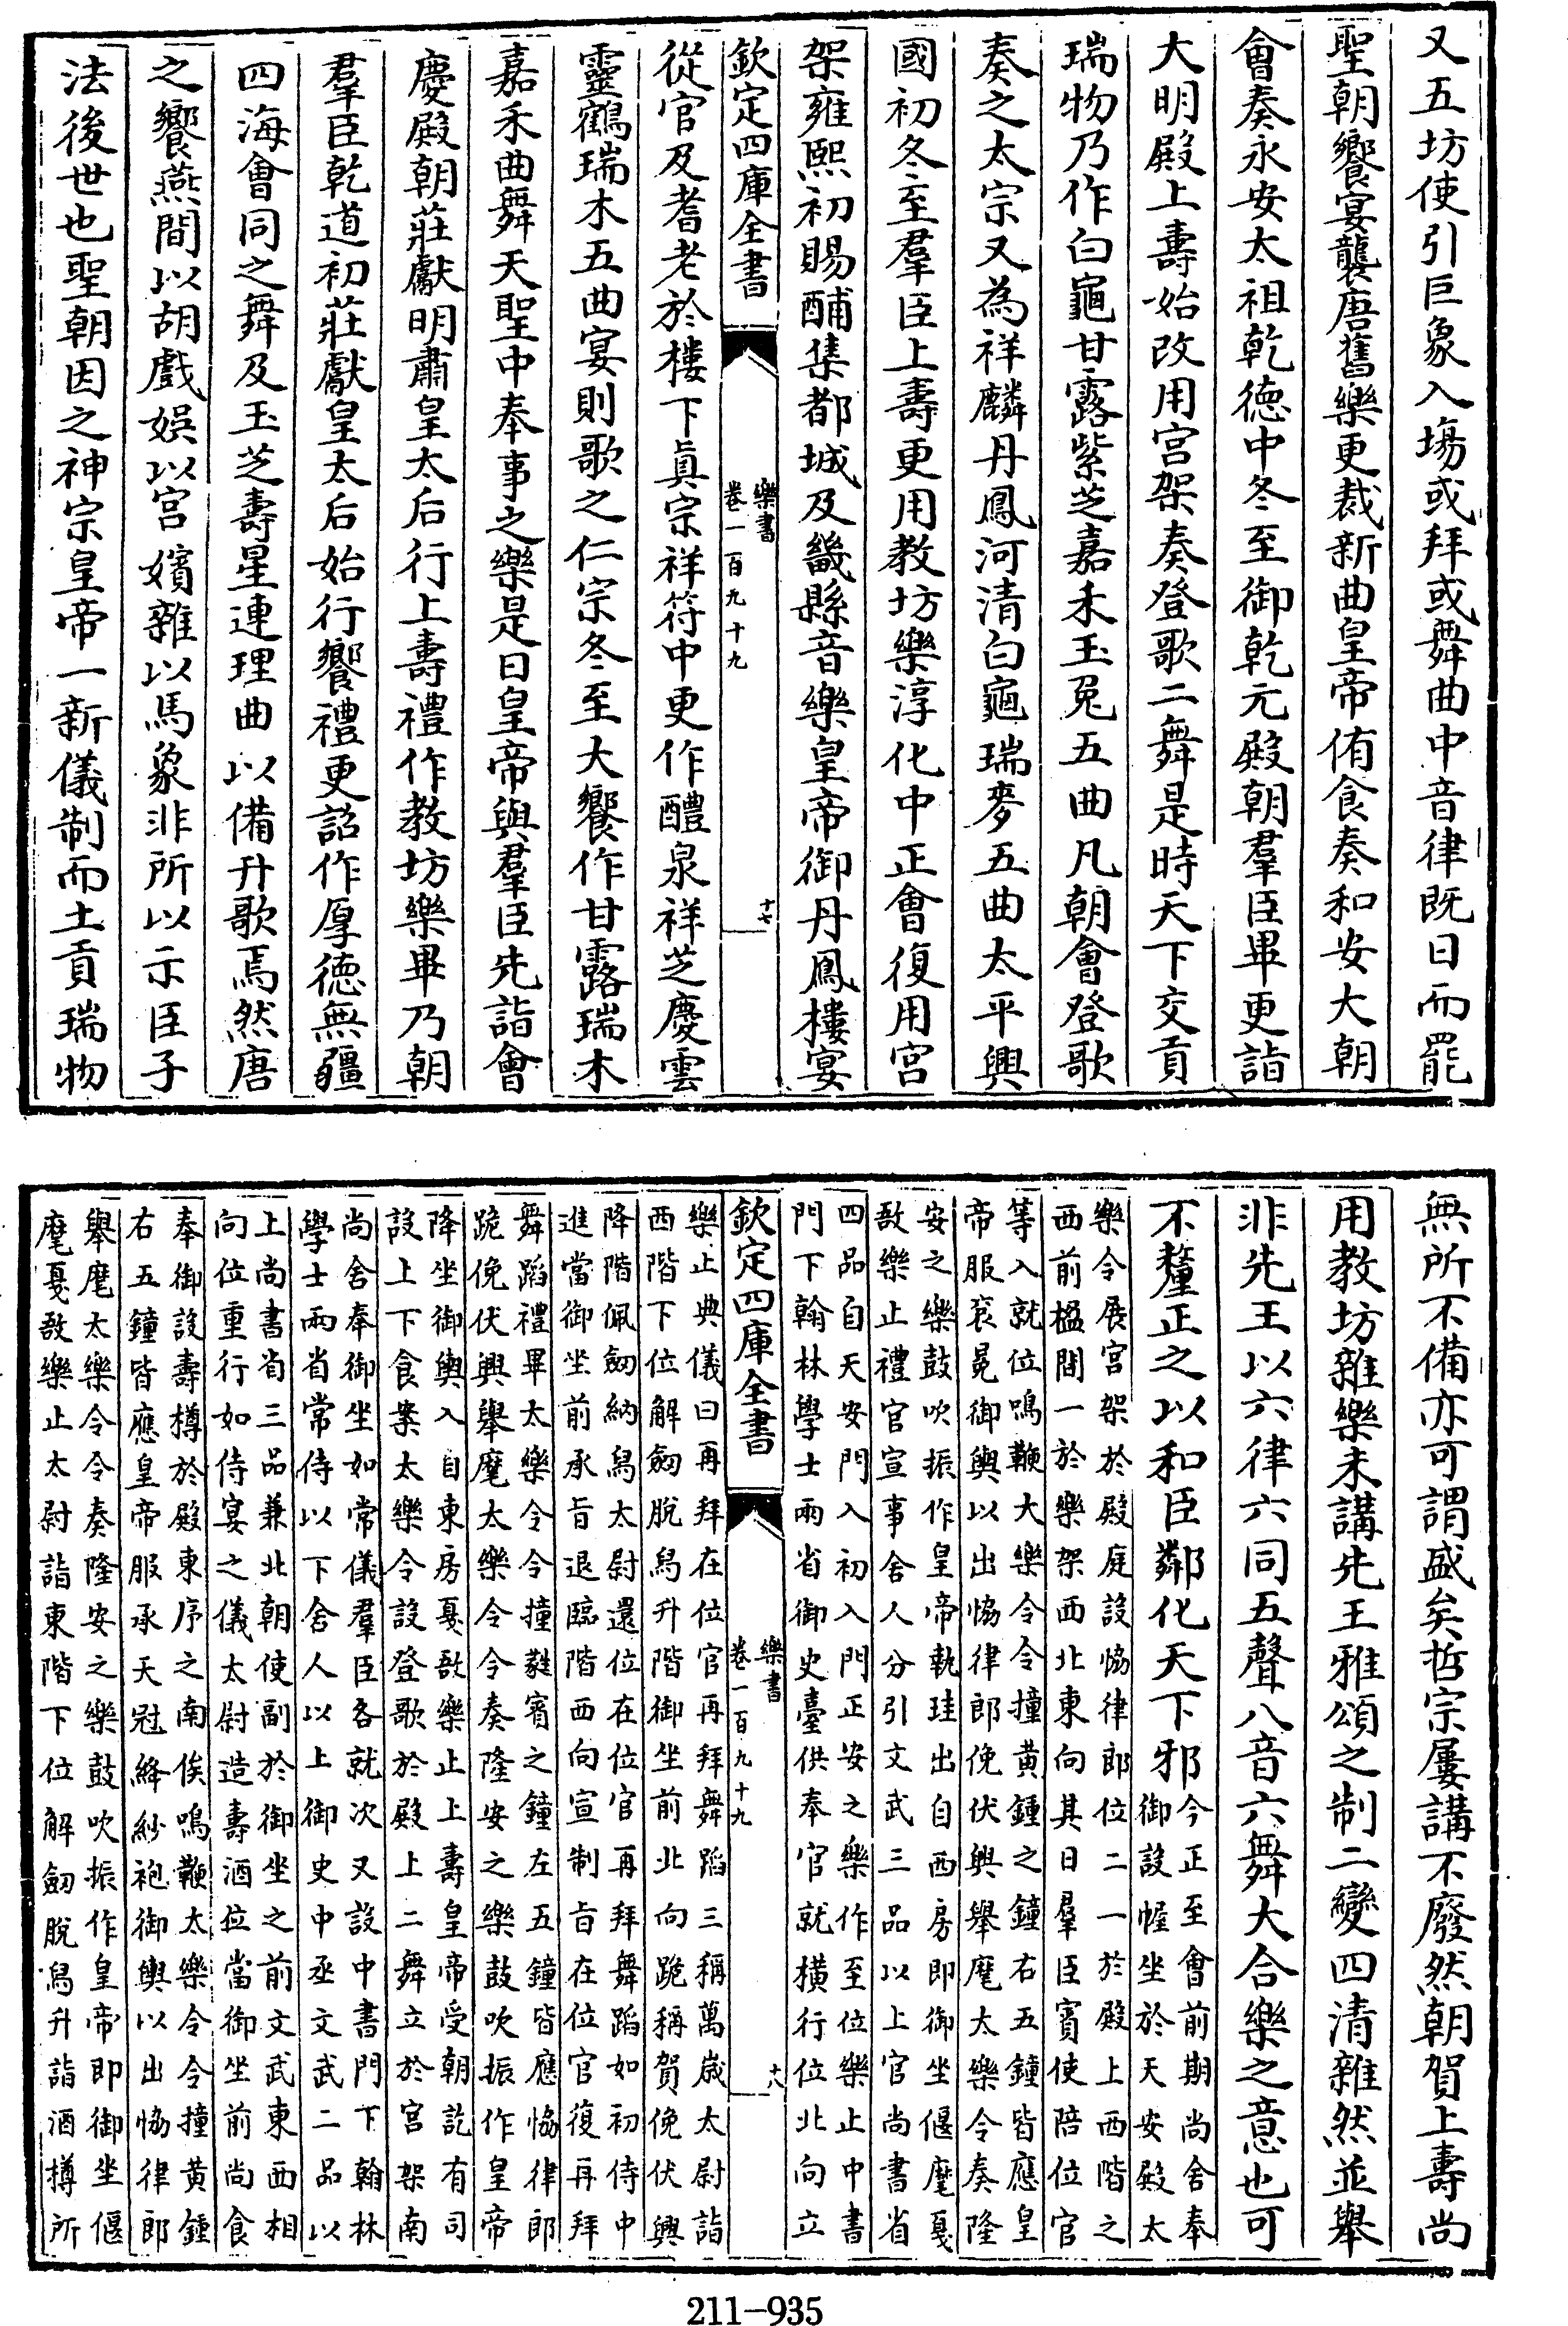 又五坊使引巨象入場或拜或舞曲中音律既日而罷
聖朝饗宴襲唐舊樂更裁新曲皇帝侑食奏和安大朝
會奏永安太祖乾徳中冬至御乾元殿朝羣臣畢更詣
大明殿上壽始改用宫架奏登歌二舞是時天下交貢
瑞物乃作白龜甘露紫芝嘉禾玉兎五曲凡朝會登歌
奏之太宗又為祥麟丹鳳河清白龜瑞麥五曲太平興
國初冬至羣臣上壽更用教坊樂淳化中正會復用宫
架雍熙初賜酺集都城及畿縣音樂皇帝御丹鳳樓宴
欽定四庫全書
樂書
卷一百九十九
十七
從官及耆老於樓下真宗祥符中更作醴泉祥芝慶雲
靈鶴瑞木五曲宴則歌之仁宗冬至大饗作甘露瑞木
嘉禾曲舞天聖中奉事之樂是日皇帝與羣臣先詣會
慶殿朝莊獻明肅皇太后行上壽禮作教坊樂畢乃朝
羣臣乾道初莊獻皇太后始行饗禮更詔作厚徳無疆
四海會同之舞及玉芝壽星連理曲以備升歌焉然唐
之饗燕間以胡戲娱以宫嬪雜以馬象非所以示臣子
法後世也聖朝因之神宗皇帝一新儀制而土貢瑞物
無所不備亦可謂盛矣哲宗屢講不廢然朝賀上壽尚
用教坊雜樂未講先王雅頌之制二變四清雜然並舉
非先王以六律六同五聲八音六舞大合樂之意也可
不釐正之以和臣鄰化天下邪今正至會前期尚舍奉
御設幄坐於天安殿太
樂令展宫架於殿庭設恊律郎位二一於殿上西階之
西前楹間一於樂架西北東向其日羣臣賓使陪位官
等入就位鳴鞭大樂令令撞黄鍾之鐘右五鐘皆應皇
帝服衮冕御輿以出恊律郎俛伏興舉麾太樂令奏隆
安之樂鼓吹振作皇帝執珪出自西房即御坐偃麾戛
敔樂止禮官宣事舍人分引文武三品以上官尚書省
四品自天安門入初入門正安之樂作至位樂止中書
門下翰林學士兩省御史臺供奉官就横行位北向立
欽定四庫全書
樂書
卷一百九十九
十八
樂止典儀曰再拜在位官再拜舞蹈三稱萬嵗太尉詣
西階下位解劒脱舄升階御坐前北向跪稱賀俛伏興
降階佩劒納舄太尉還位在位官再拜舞蹈如初侍中
進當御坐前承旨退臨階西向宣制旨在位官復再拜
舞蹈禮畢太樂令令撞蕤賓之鐘左五鐘皆應恊律郎
跪俛伏興舉麾太樂令令奏隆安之樂鼓吹振作皇帝
降坐御輿入自東房戛敔樂止上壽皇帝受朝訖有司
設上下食案太樂令設登歌於殿上二舞立於宫架南
尚舍奉御坐如常儀羣臣各就次又設中書門下翰林
學士兩省常侍以下舍人以上御史中丞文武二品以
上尚書省三品兼北朝使副於御坐之前文武東西相
向位重行如侍宴之儀太尉造壽酒位當御坐前尚食
奉御設壽樽於殿東序之南俟鳴鞭太樂令令撞黄鍾
右五鐘皆應皇帝服承天冠絳紗袍御輿以出恊律郎
舉麾太樂令令奏隆安之樂鼓吹振作皇帝即御坐偃
麾戛敔樂止太尉詣東階下位解劒脱舄升詣酒樽所
211-935